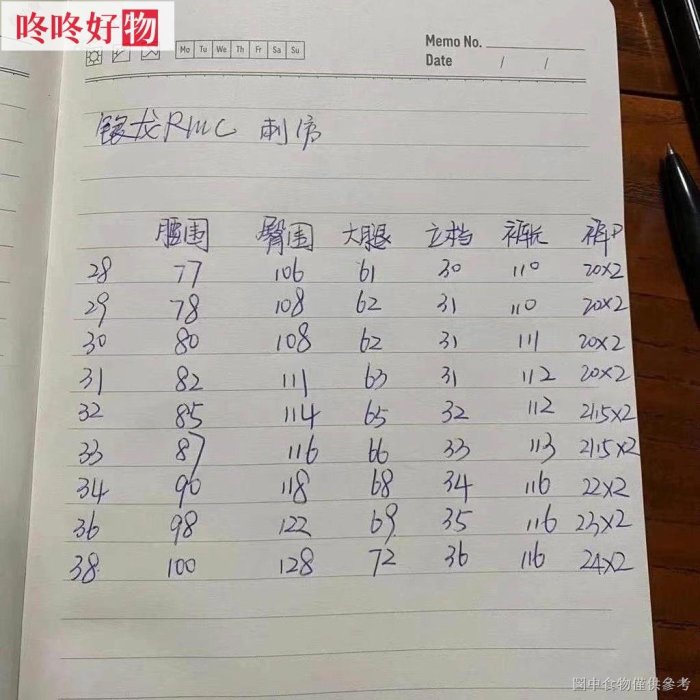 咚咚好物
Mo Tu We Th Fr Sa Su
Memo No.
Date / /
龙RMC 刺
腰围 臀围 大腿 立档 裤长 裤P
28 77 106 61 30 110 20×2
29 78 108 62 31 110 20×2
30 80 108 62 31 111 20×2
31 82 111 63 31 112 20×2
32 85 114 65 32 112 21.5×2
33 87 116 66 33 113 21.5×2
34 90 118 68 34 116 22×2
36 98 122 69 35 116 23×2
38 100 128 72 36 116 24×2
圖中食物僅供參考